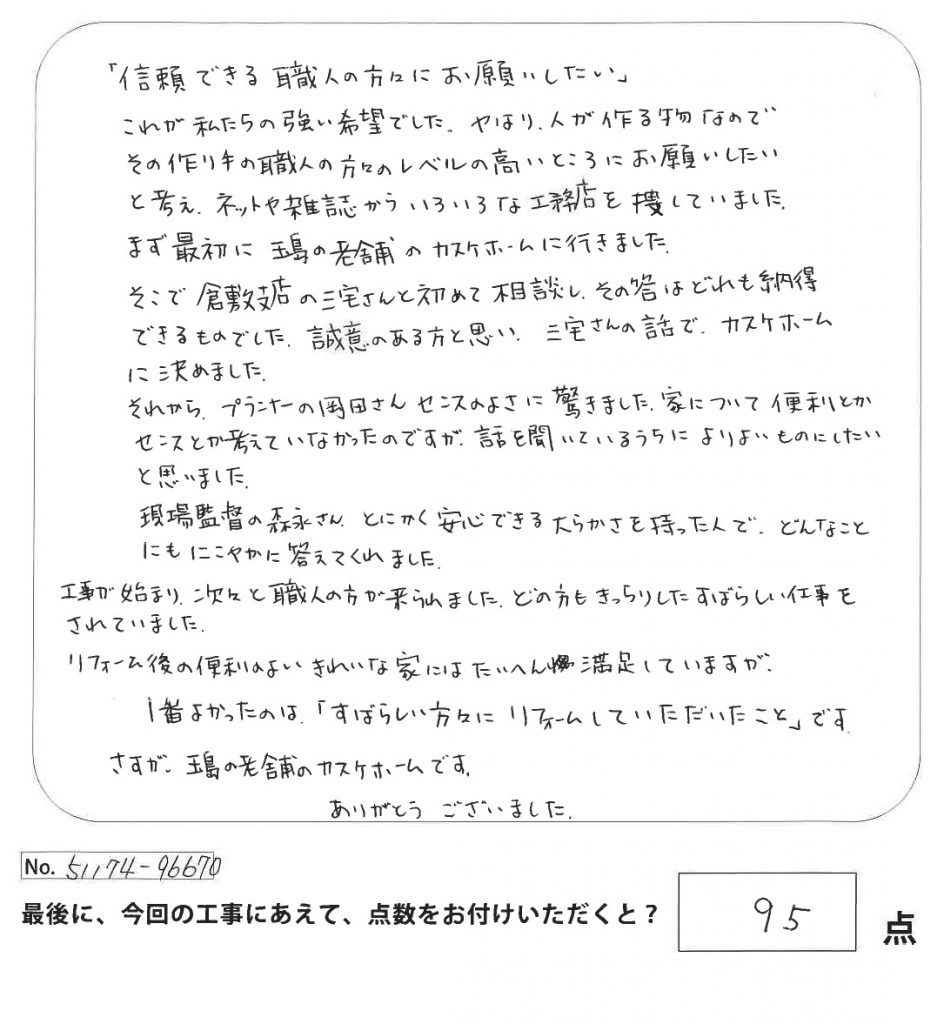 「信頼できる職人の方々にお願いしたい」
これが私たちの強い希望でした。やはり、人が作る物なので
その作り手の職人の方々のレベルの高いところにお願いしたい
と考え、ネットや雑誌からいろいろな工務店を捜していました。
まず最初に玉島の老舗のカスケホームに行きました。
そこで倉敷支店の三宅さんと初めて相談し、その答はどれも納得
できるものでした。誠意のある方と思い、三宅さんの話で、カスケホーム
に決めました。
それから、プランナーの岡田さんセンスのよさに驚きました。家について便利とか
センスとか考えていなかったのですが、話を聞いているうちによりよいものにしたい
と思いました。
現場監督の森永さん、とにかく安心できる大らかさを持った人で、どんなこと
にもにこやかに答えてくれました。
工事が始まり、次々と職人の方が来られました。どの方もきっちりしたすばらしい仕事を
されていました。
リフォーム後の便利のよいきれいな家にはたいへん満足していますが、
1番よかったのは、「すばらしい方々にリフォームしていただいたこと」です。
さすが、玉島の老舗のカスケホームです。
ありがとうございました。
No. 51174-96670
最後に、今回の工事にあえて、点数をお付けいただくと？ 95 点